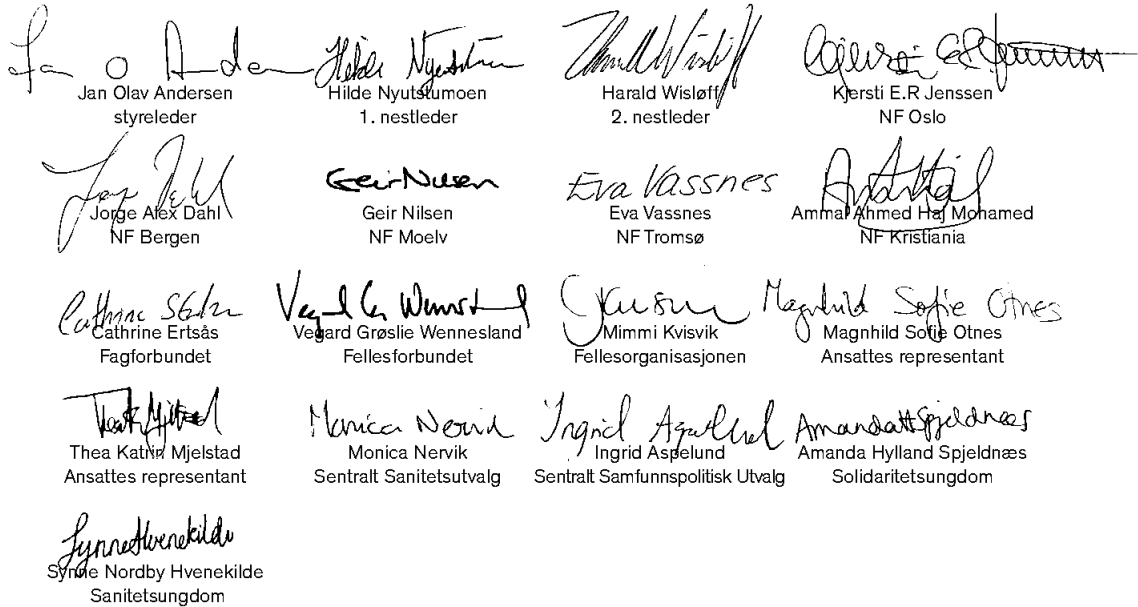 Jan O Andersen
Hilde Nyutstumoen
Harald Wisløff
Jan Olav Andersen
styreleder
Hilde Nyutstumoen
1. nestleder
Harald Wisløff
2. nestleder
Kjersti E.R Jenssen
NF Oslo
Geir Nilsen
Eva Vassnes
Jorge Alex Dahl
NF Bergen
Geir Nilsen
NF Moelv
Eva Vassnes
NF Tromsø
Ammal Ahmed Haj Mohamed
NF Kristiania
Magnhild Sofie Otnes
Cathrine Ertsås
Fagforbundet
Vegard Grøslie Wennesland
Fellesforbundet
Mimmi Kvisvik
Fellesorganisasjonen
Magnhild Sofie Otnes
Ansattes representant
Monica Nervik
Ingrid Aspelund
Thea Katrin Mjelstad
Ansattes representant
Monica Nervik
Sentralt Sanitetsutvalg
Ingrid Aspelund
Sentralt Samfunnspolitisk Utvalg
Amanda Hylland Spjeldnæs
Solidaritetsungdom
Synne Hvenekilde
Synne Nordby Hvenekilde
Sanitetsungdom